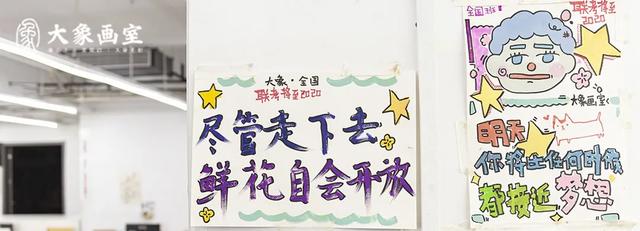 大象画室
大象·全国
联考将至2020
尽管走下去
鲜花自会开放
全国班
联考将至
2020
大象画室
明天
你将比任何时候
都接近梦想